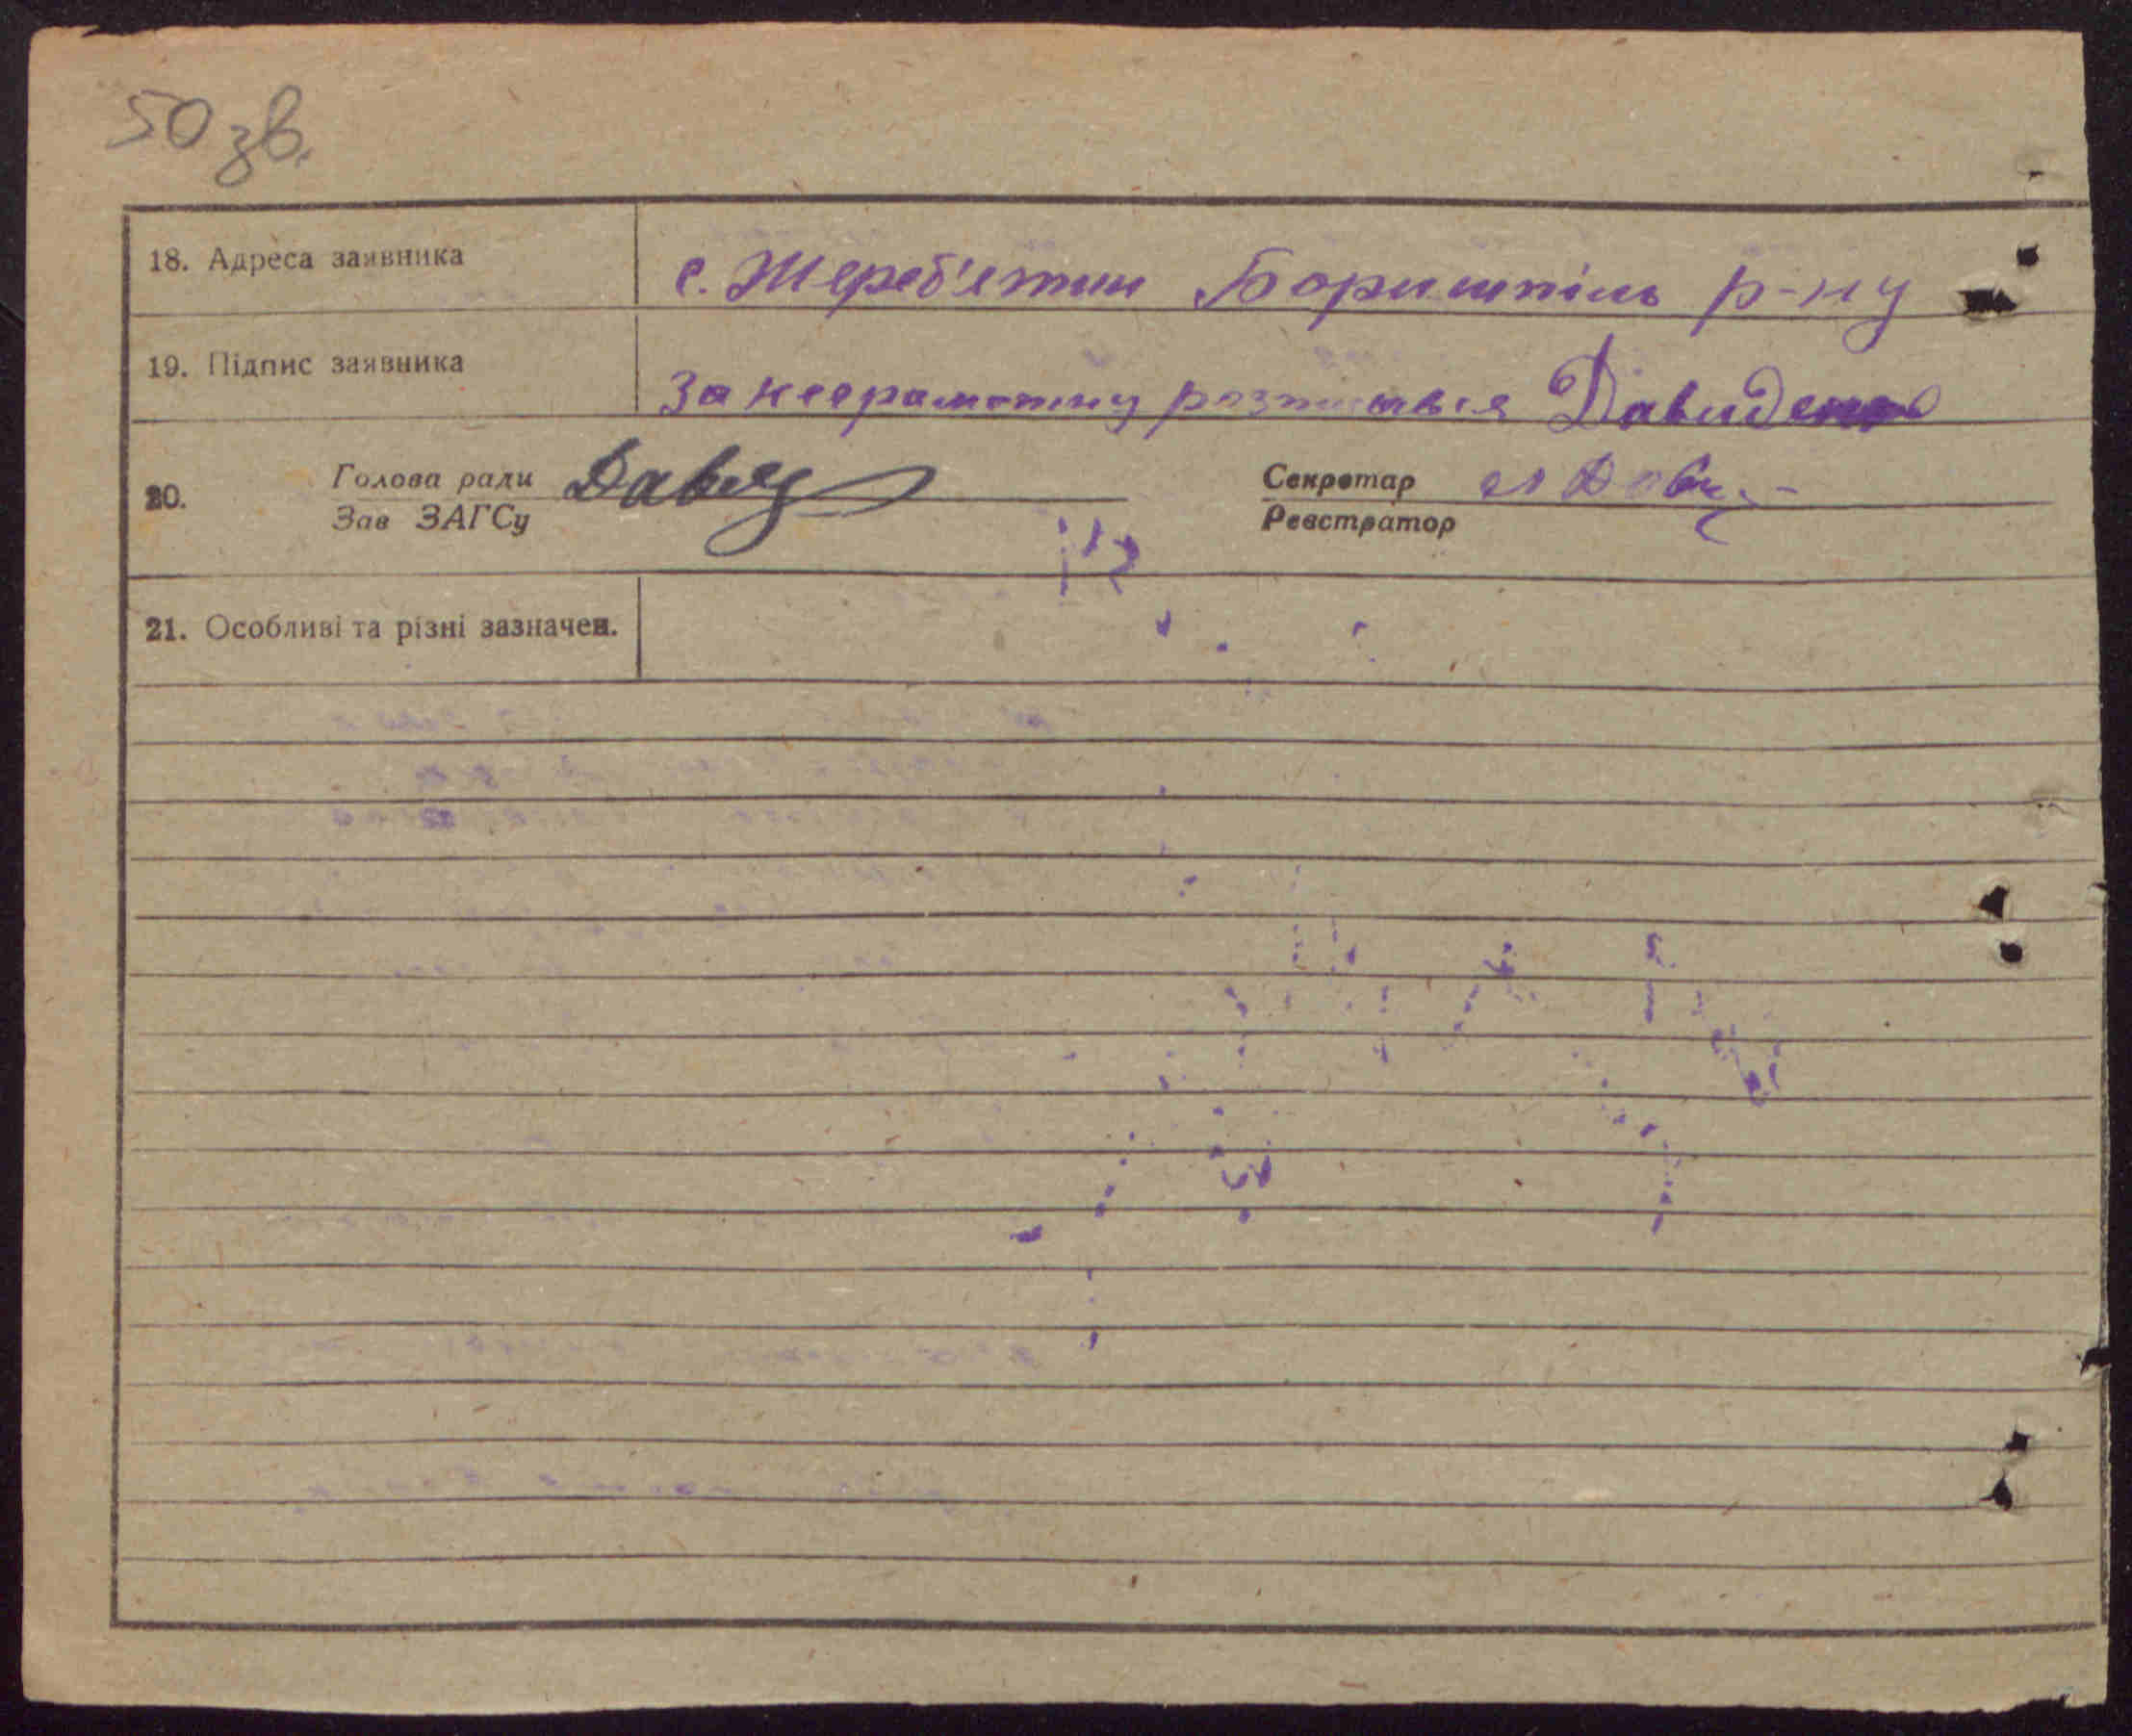 50 зв.
18. Адреса заявника с. Жереб'ятин Боришпіль р-ну
19. Підпис заявника За неграмотну розписався Давиденко
20. Голова ради Секретар
Зав ЗАГСу Реєстратор
21. Особливі та різні зазначен.